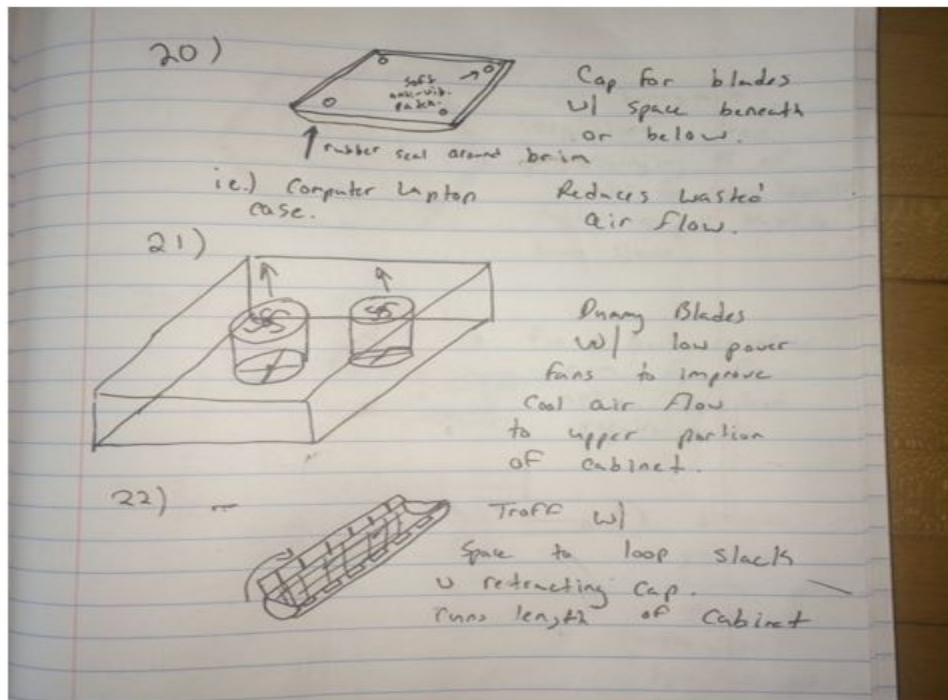 20)
soft
anti-vib.
patch.
Cap for blades
w/ space beneath
or below.
rubber seal around brim
ie.) Computer Laptop
case.
Reduces wasted
air flow.
21)
Dummy Blades
w/ low power
fans to improve
cool air flow
to upper portion
of cabinet.
22)
Troff w/
Space to loop slack
w retracting cap.
runs length of cabinet